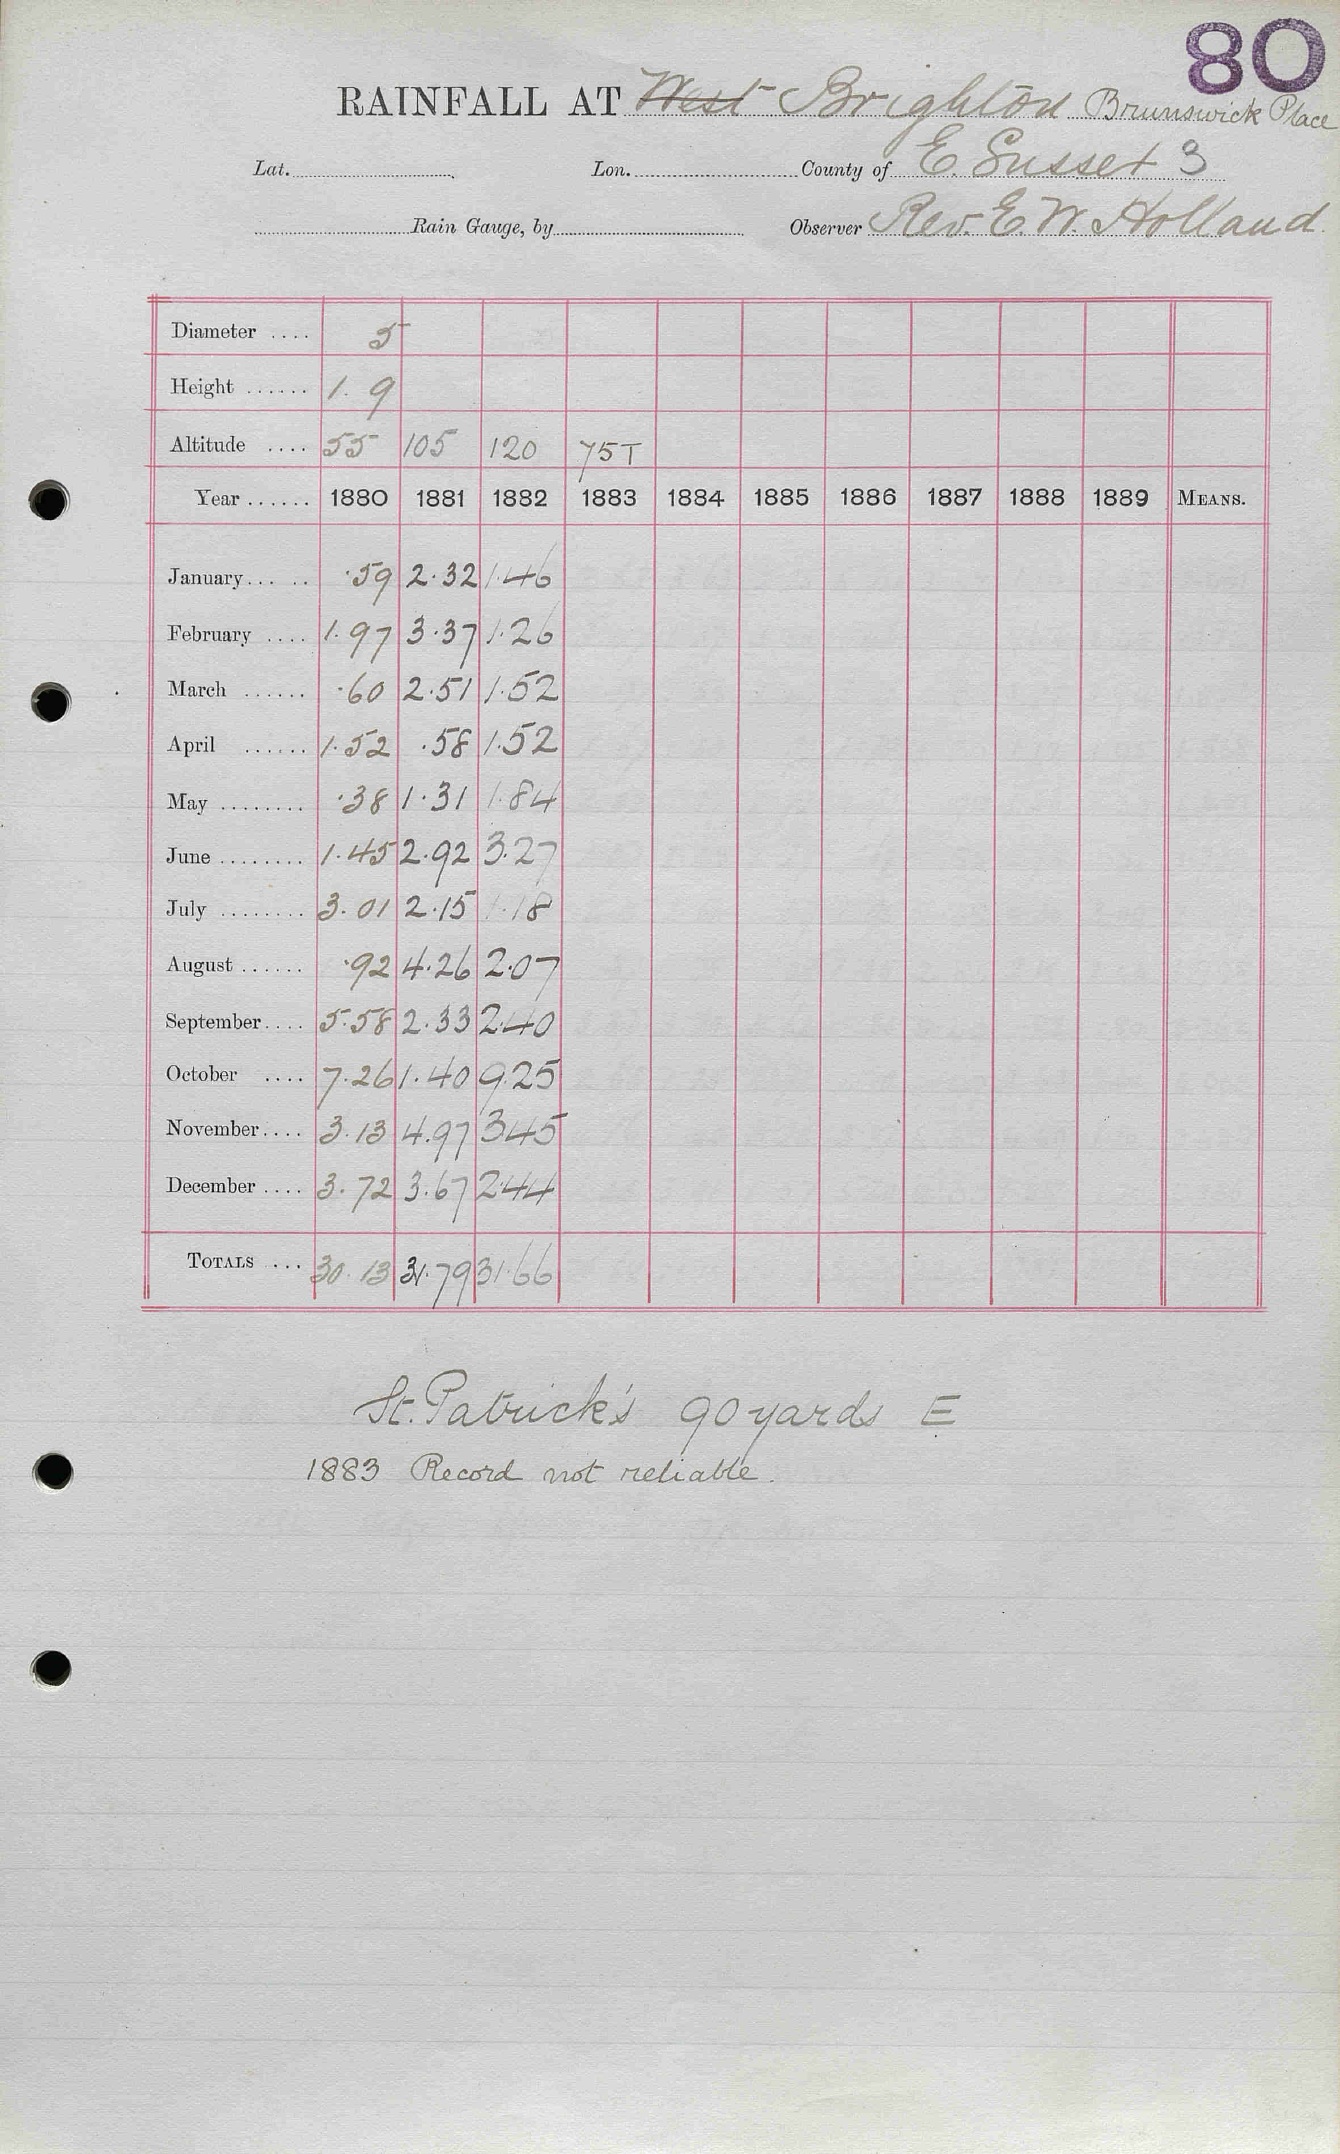 80
RAINFALL AT West Brighton Brunswick Place
Lat. Lon. County of E. Sussex 3
Rain Gauge, by Observer Rev. E. W. Holland.
Diameter .... 5
Height ...... 1. 9
Altitude .... 55 105 120 75T
Year ...... 1880 1881 1882 1883 1884 1885 1886 1887 1888 1889 MEANS.
January.... .. ·59 2·32 1·46
February .... 1·97 3·37 1·26
March ...... ·60 2·51 1·52
April ...... 1·52 ·58 1·52
May ........ ·38 1·31 1·84
June ........ 1·45 2·92 3·27
July ........ 3·01 2·15 1·18
August ...... ·92 4·26 2·07
September.... 5·58 2·33 2·40
October .... 7·26 1·40 9·25
November.... 3·13 4·97 3·45
December .... 3·72 3·67 2·44
TOTALS ... 30·13 31·79 31·66
St. Patrick's 90 yards E
1883 Record not reliable.